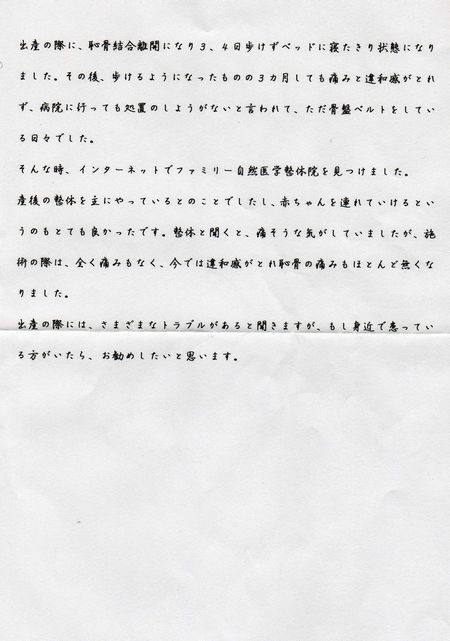 出産の際に、恥骨結合離開になり3、4日歩けずベッドに寝たきり状態になり
ました。その後、歩けるようになったものの3カ月しても痛みと違和感がとれ
ず、病院に行っても処置のしようがないと言われて、ただ骨盤ベルトをしてい
る日々でした。
そんな時、インターネットでファミリー自然医学整体院を見つけました。
産後の整体を主にやっているとのことでしたし、赤ちゃんを連れていけるとい
うのもとても良かったです。整体と聞くと、痛そうな気がしていましたが、施
術の際は、全く痛みもなく、今では違和感がとれ恥骨の痛みもほとんど無くな
りました。
出産の際には、さまざまなトラブルがあると聞きますが、もし身近で患ってい
る方がいたら、お勧めしたいと思います。